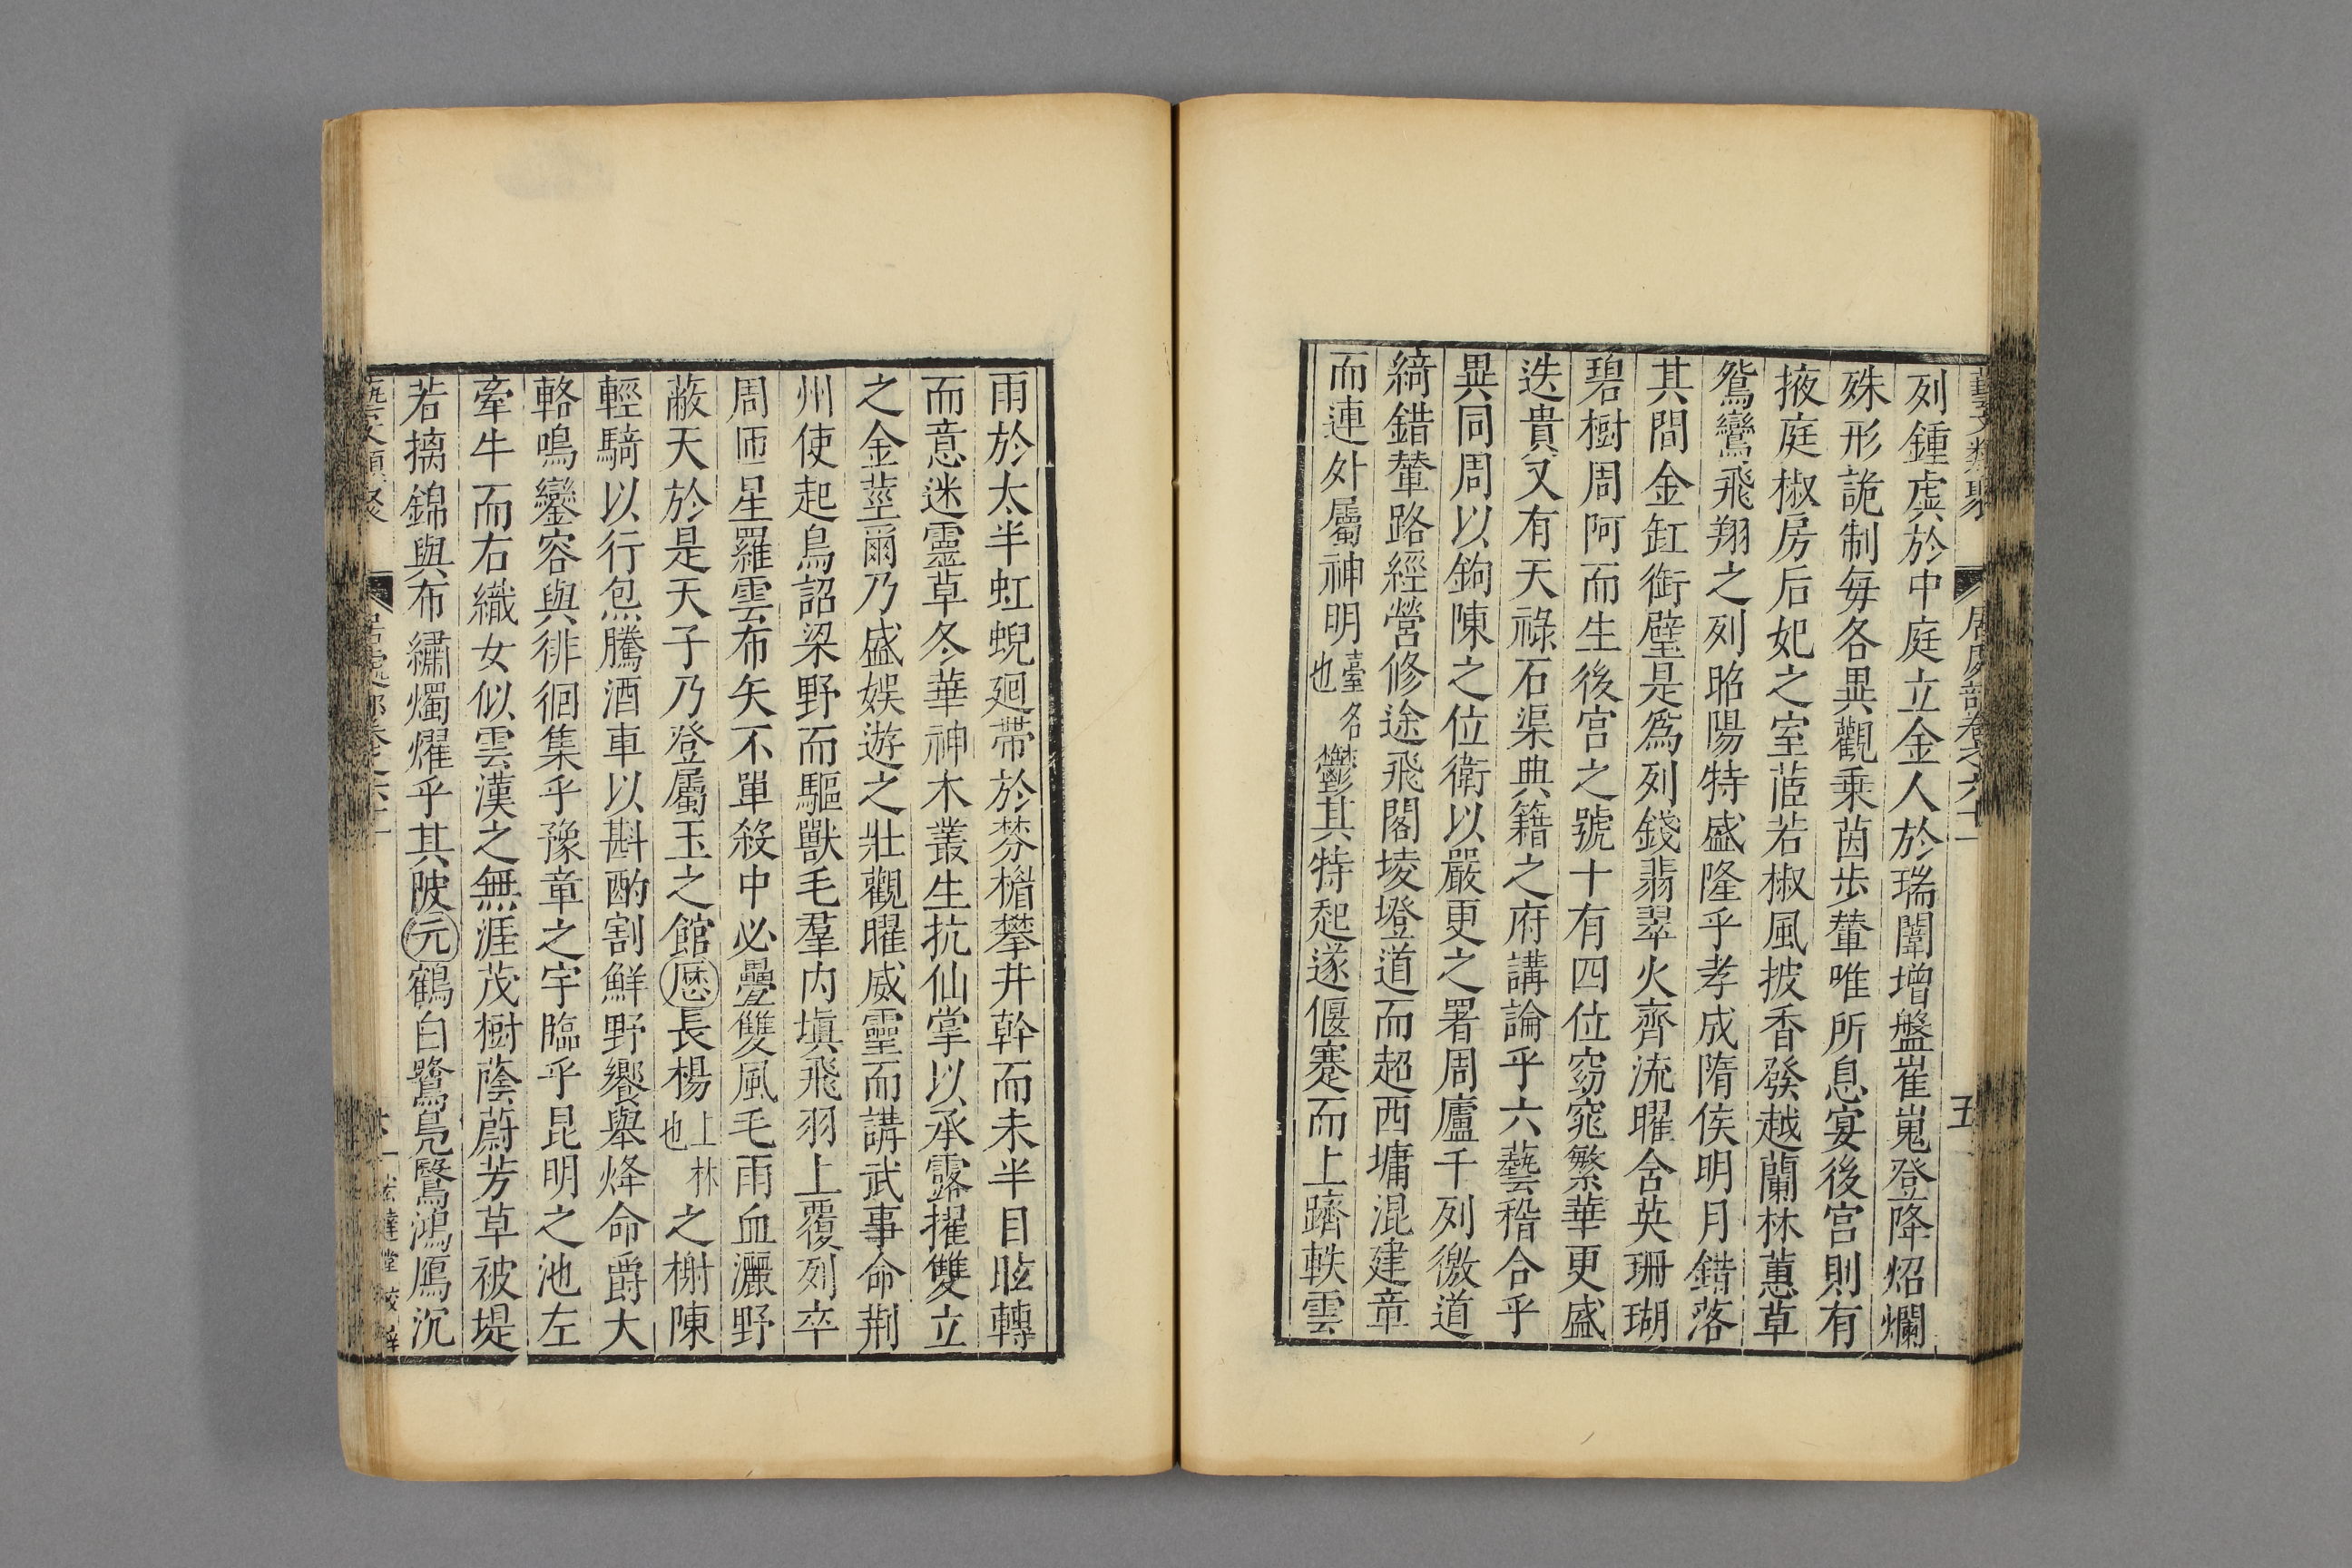 藝文類聚 居處部卷之六十二 五
列鍾虡於中庭立金人於瑞闈增盤崔嵬登降炤爛
殊形詭制每各異觀乗茵歩輦唯所息宴後宮則有
掖庭椒房后妃之室茝若椒風披香發越蘭林蕙草
鴛鸞飛翔之列昭陽特盛隆乎孝成隋侯明月錯落
其間金缸銜璧是爲列錢翡翠火齊流曜含英珊瑚
碧樹周阿而生後宮之號十有四位窈窕繁華更盛
迭貴又有天祿石渠典籍之府講論乎六藝稽合乎
異同周以鉤陳之位衛以嚴更之署周廬千列徼道
綺錯輦路經營修途飛閣堎墱道而超西墉混建章
而連外屬神明臺名也鬱其特起遂偃蹇而上躋軼雲
雨於太半虹蜺廻帶於棼楣攀井幹而未半目眩轉
而意迷靈草冬華神木叢生抗仙掌以承露擢雙立
之金莖爾乃盛娛遊之壯觀曜威靈而講武事命荆
州使起鳥詔梁野而驅獸毛羣内塡飛羽上覆列卒
周匝星羅雲布矢不單殺中必疊雙風毛雨血灑野
蔽天於是天子乃登屬玉之館歴長楊上林也之榭陳
輕騎以行炰騰酒車以斟酌割鮮野饗舉烽命爵大
輅鳴鑾容與徘徊集乎豫章之宇臨乎昆明之池左
牽牛而右織女似雲漢之無涯茂樹蔭蔚芳草被堤
若摛錦與布繡燭燿乎其陂元鶴白鷺鳧鷖鴻鴈沉
藝文類聚 居處部卷之六十二